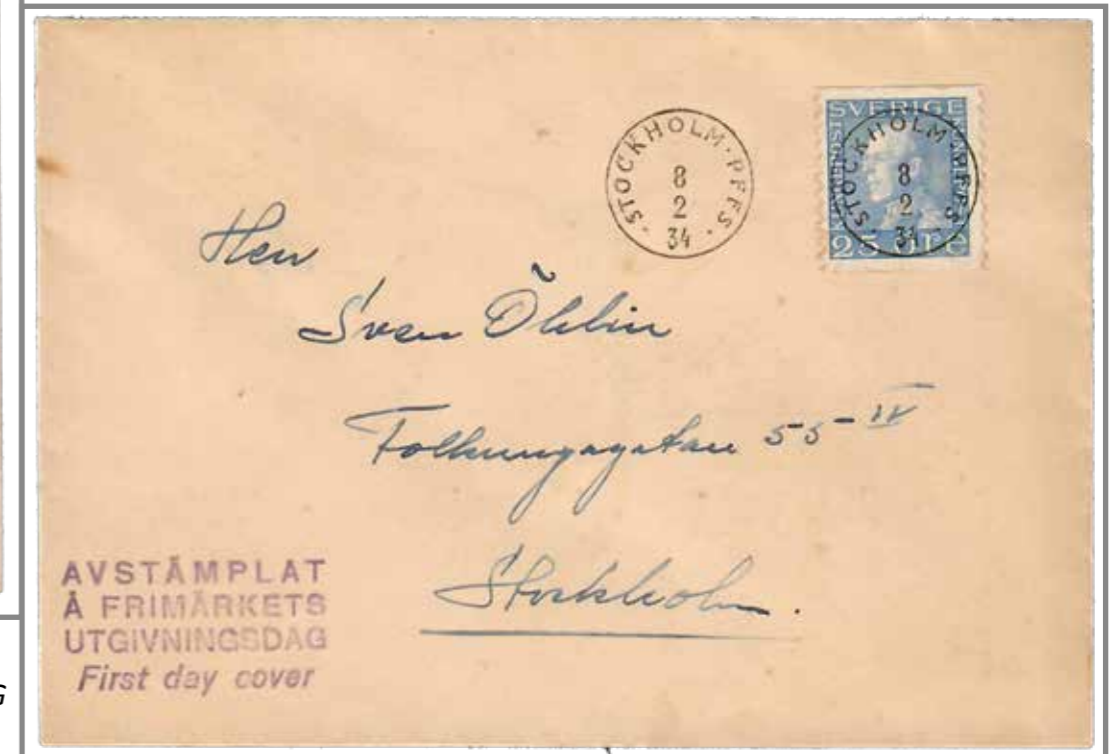 STOCKHOLM · PFFS ·
8
2
34
SVERIGE
STOCKHOLM · PFFS ·
8
2
34
25 ÖRE
Herr
Sven Öhlin
Folkungagatan 55-IV
Stockholm.
AVSTÄMPLAT
Å FRIMÄRKETS
UTGIVNINGSDAG
First day cover
G